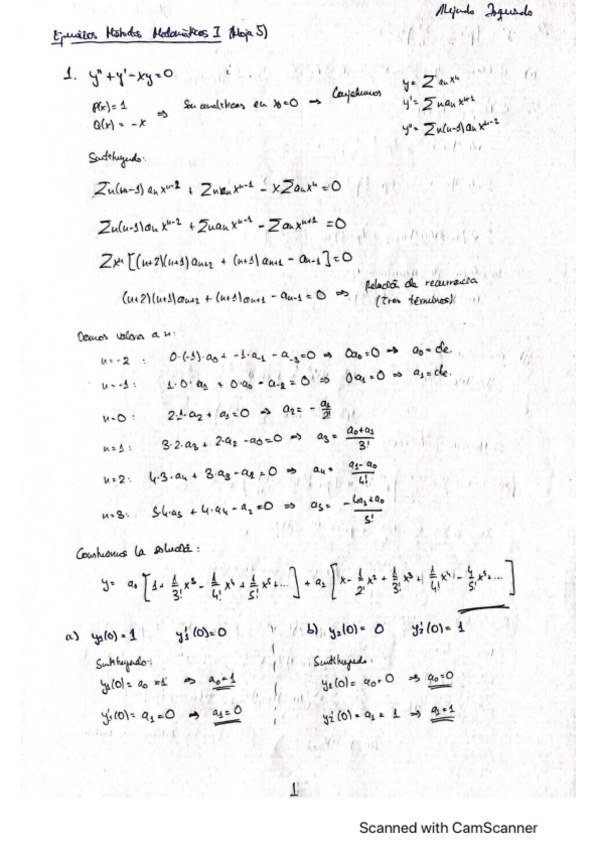 Alejandro Izquierdo
Ejercicios Métodos Matemáticos I (Hoja 5)
1. y'' + y' - xy = 0
P(x) = 1
Q(x) = -x
⇒ Son analíticas en x₀=0 ⇒
y = Σ aₙxⁿ
y' = Σ n aₙ xⁿ⁻¹
y'' = Σ n(n-1) aₙ xⁿ⁻²
Sustituyendo:
Σ n(n-1) aₙ xⁿ⁻² + Σ n aₙ xⁿ⁻¹ - x Σ aₙ xⁿ = 0
Σ n(n-1) aₙ xⁿ⁻² + Σ n aₙ xⁿ⁻¹ - Σ aₙ xⁿ⁺¹ = 0
Σ xⁿ [(n+2)(n+1) aₙ₊₂ + (n+1) aₙ₊₁ - aₙ₋₁] = 0
(n+2)(n+1) aₙ₊₂ + (n+1) aₙ₊₁ - aₙ₋₁ = 0 ⇒ Relación de recurrencia (Tres términos)
Damos valores a n:
n=-2: 0·(-1)·a₀ + -1·a₋₁ - a₋₃ = 0 ⇒ 0a₀ = 0 ⇒ a₀ = cte.
n=-1: 1·0·a₁ + 0·a₀ - a₋₂ = 0 ⇒ 0a₁ = 0 ⇒ a₁ = cte.
n=0: 2·1·a₂ + a₁ = 0 ⇒ a₂ = - a₁/2!
n=1: 3·2·a₃ + 2·a₂ - a₀ = 0 ⇒ a₃ = (a₀+a₁)/3!
n=2: 4·3·a₄ + 3·a₃ - a₁ = 0 ⇒ a₄ = (a₁-a₀)/4!
n=3: 5·4·a₅ + 4·a₄ - a₂ = 0 ⇒ a₅ = (-4a₁+a₀)/5!
Construimos la solución:
y = a₀ [1 + 1/3! x³ - 1/4! x⁴ + 1/5! x⁵ + ...] + a₁ [x - 1/2! x² + 1/3! x³ + 1/4! x⁴ - 4/5! x⁵ + ...]
a) y₁(0) = 1 y₁'(0) = 0
Sustituyendo:
y₁(0) = a₀ = 1 ⇒ a₀ = 1
y₁'(0) = a₁ = 0 ⇒ a₁ = 0
b) y₂(0) = 0 y₂'(0) = 1
Sustituyendo:
y₂(0) = a₀ = 0 ⇒ a₀ = 0
y₂'(0) = a₁ = 1 ⇒ a₁ = 1
1
Scanned with CamScanner